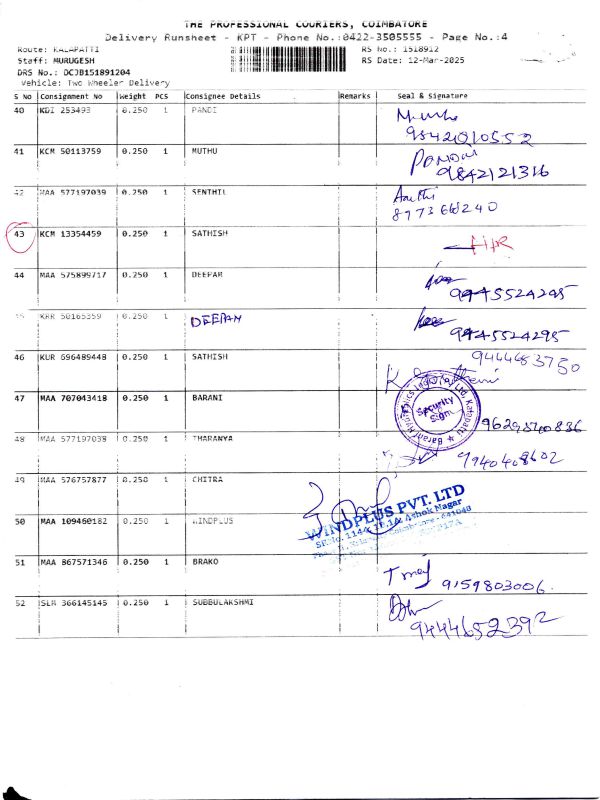 THE PROFESSIONAL COURIERS, COIMBATORE
Delivery Runsheet - KPT - Phone No.:0422-3505555 - Page No.:4
Route: KALAPATTI
RS No.: 1518912
Staff: MURUGESH
RS Date: 12-Mar-2025
DRS No.: DCJB151891204
Vehicle: Two Wheeler Delivery
S No Consignment No Weight PCS Consignee Details Remarks Seal & Signature
40 KDI 253493 0.250 1 PANDI
9842010552
41 KCM 50113759 0.250 1 MUTHU
9842121316
42 MAA 577197039 0.250 1 SENTHIL Aarthi
43 KCM 13354459 0.250 1 SATHISH
44 MAA 575899717 0.250 1 DEEPAR
9445524295
45 KRR 50165359 0.250 1 DEEPAN
9445524295
46 KUR 696489448 0.250 1 SATHISH 9444683750
47 MAA 707043418 0.250 1 BARANI
Security
Sign.
48 MAA 577197038 0.250 1 THARANYA
9940408602
49 MAA 576757877 0.250 1 CHITRA
50 MAA 109460182 0.250 1 WINDPLUS
WINDPLUS PVT. LTD
Ashok Nagar
51 MAA 867571346 0.250 1 BRAKO
9159803006
52 SLM 366145145 0.250 1 SUBBULAKSHMI
9444652392